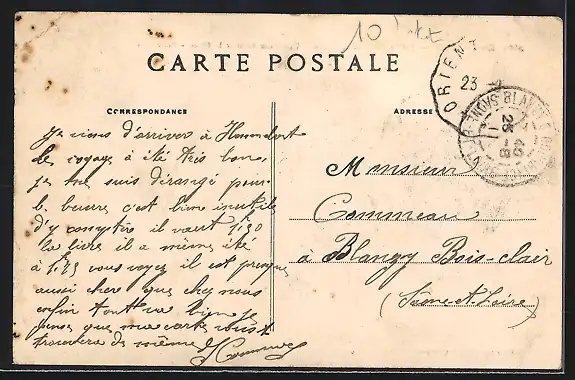 10
CARTE POSTALE
CORRESPONDANCE
ADRESSE
ORIENT
23
BLANZY
SAONE-ET-L
15
25 -8
Je viens d'arriver à
le voyage à été très bon.
je me suis dérangé pour
le beurre c'est bien inutile
d'y compter il vaut 1f30
la livre il a même été
à 1f75 vous voyez il est presque
aussi cher que chez nous
enfin tout va bien je
pense que ma carte vous
trouvera de même
Monsieur
Commeau
à Blangy Bois-clair
(Saone et Loire)